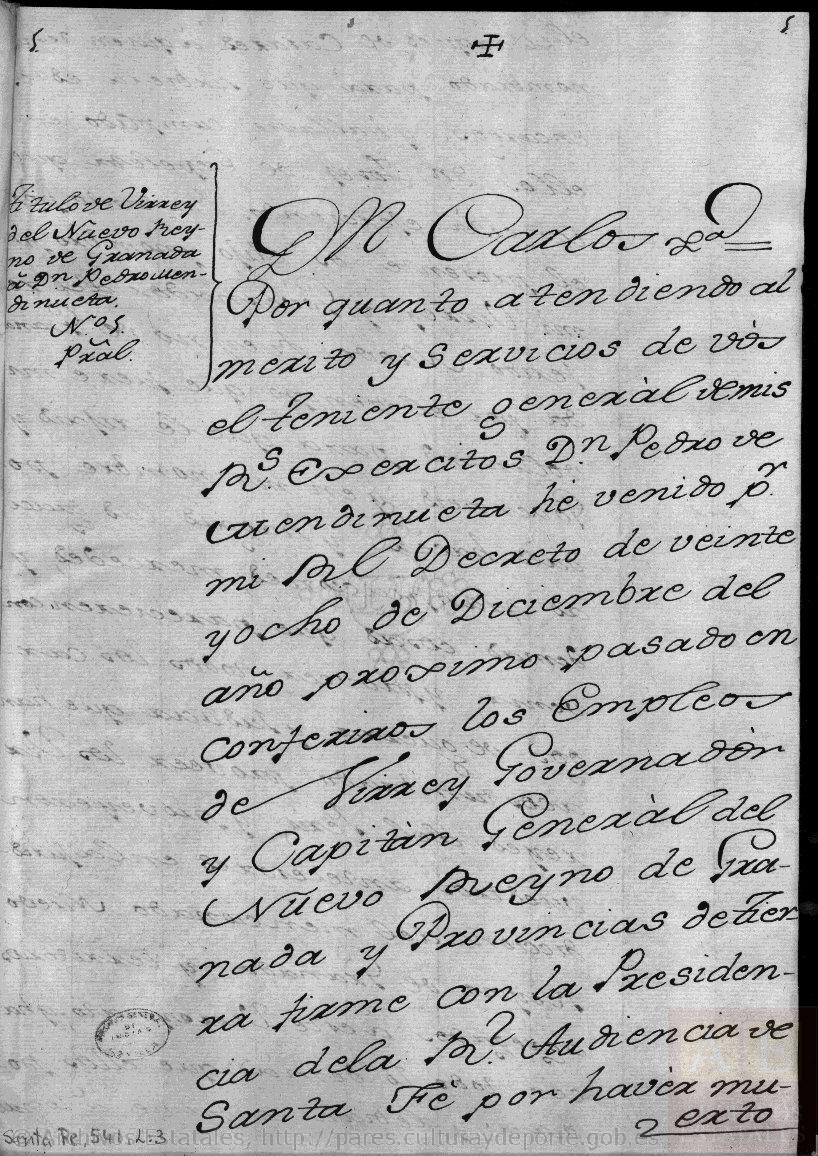 5.
5
Titulo de Virrey
del Nuevo Rey-
no de Granada
â Dn. Pedro Men-
dinueta.
N.º 5.
Pral.
Dn Carlos &a
Por quanto atendiendo al
merito y servicios de vòs
el Teniente generàl de mis
Rs. Exercitos Dn. Pedro de
Mendinueta hè venido pr.
mi Rl Decreto de veinte
y ocho de Diciembre del
año proximo pasado en
conferiros los Empleos
de Virrey Governadòr
y Capitàn Generàl del
Nuevo Reyno de Gra-
nada y Provincias de Tier
ra firme con la Presiden-
cia de la Rl. Audiencia de
Santa Fè por havèr mu-
erto
Santa Fe, 541, L.3
Estatales, http://pares.culturaydeporte.gob.es